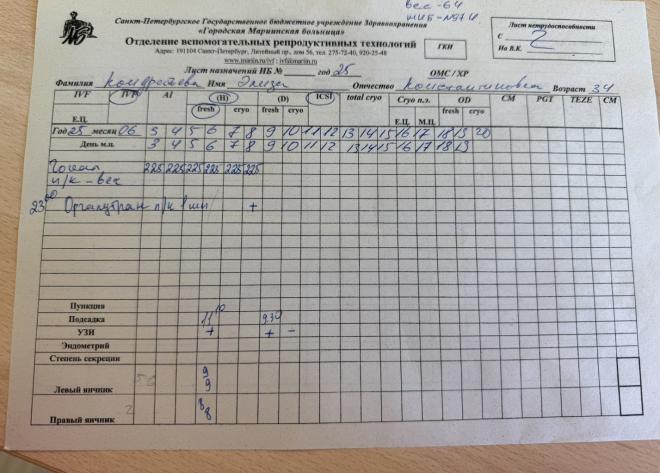 вес-64
Санкт-Петербургское Государственное бюджетное учреждение Здравоохранения
«Городская Мариинская больница»
Отделение вспомогательных репродуктивных технологий
Адрес: 191104 Санкт-Петербург, Литейный пр., дом 56, тел. 275-72-40, 920-25-48
www.mariin.ru/ivf ; ivf@mariin.ru
ГКИ
Лист нетрудоспособности
С 2
По В.К.
Лист назначений ИБ № год 25 ОМС / ХР
Фамилия Имя Отчество Константиновна Возраст 34
IVF IVF AI (H) (D) ICSI total cryo Cryo п.э. OD CM PGT TEZE CM
Е.Ц. fresh cryo fresh cryo Е.Ц. М.Ц. fresh cryo
Год 25 месяц 06 3 4 5 6 7 8 9 10 11 12 13 14 15 16 17 18 19 20
День м.ц. 3 4 5 6 7 8 9 10 11 12 13 14 15 16 17 18 19
Гонал 225 225 225 225 225 225
п/к - вес
23 00 Оргалутран п/к 1 шп +
Пункция
Подсадка 11 10 934
УЗИ + + –
Эндометрий
Степень секреции
Левый яичник 9 9
Правый яичник 8 8